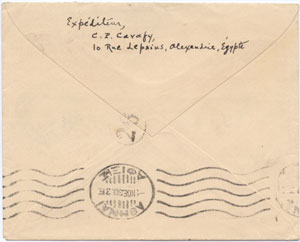 Expéditeur,
C. P. Cavafy,
10 Rue Lepsius, Alexandrie, Égypte
25
ΑΘΗΝΑΙ
ΑΦΙΞΙΣ